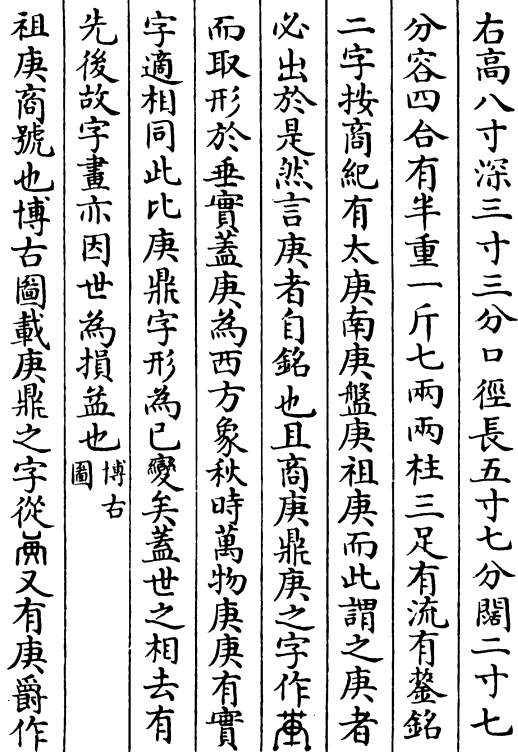 右高八寸深三寸三分口徑長五寸七分闊二寸七
分容四合有半重一斤七兩兩柱三足有流有鋬銘
二字按商紀有太庚南庚盤庚祖庚而此謂之庚者
必出於是然言庚者自銘也且商庚鼎庚之字作
而取形於垂實蓋庚為西方象秋時萬物庚庚有實
字適相同此比庚鼎字形為已變矣蓋世之相去有
先後故字畫亦因世為損益也博古圖
祖庚商號也博古圖載庚鼎之字從又有庚爵作